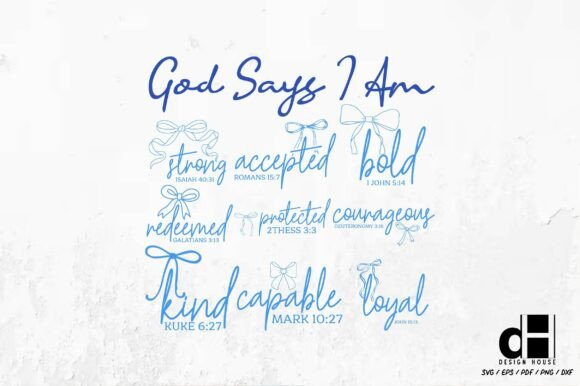 God Says I Am
strong accepted bold
ISAIAH 40:31 ROMANS 15:7 1 JOHN 5:14
redeemed protected courageous
GALATIANS 3:13 2THESS 3:3 DEUTERONOMY 3:16
kind capable loyal
KUKE 6:27 MARK 10:27
di
DESIGN HOUSE
SVG / EPS / PDF / PNG / DXF